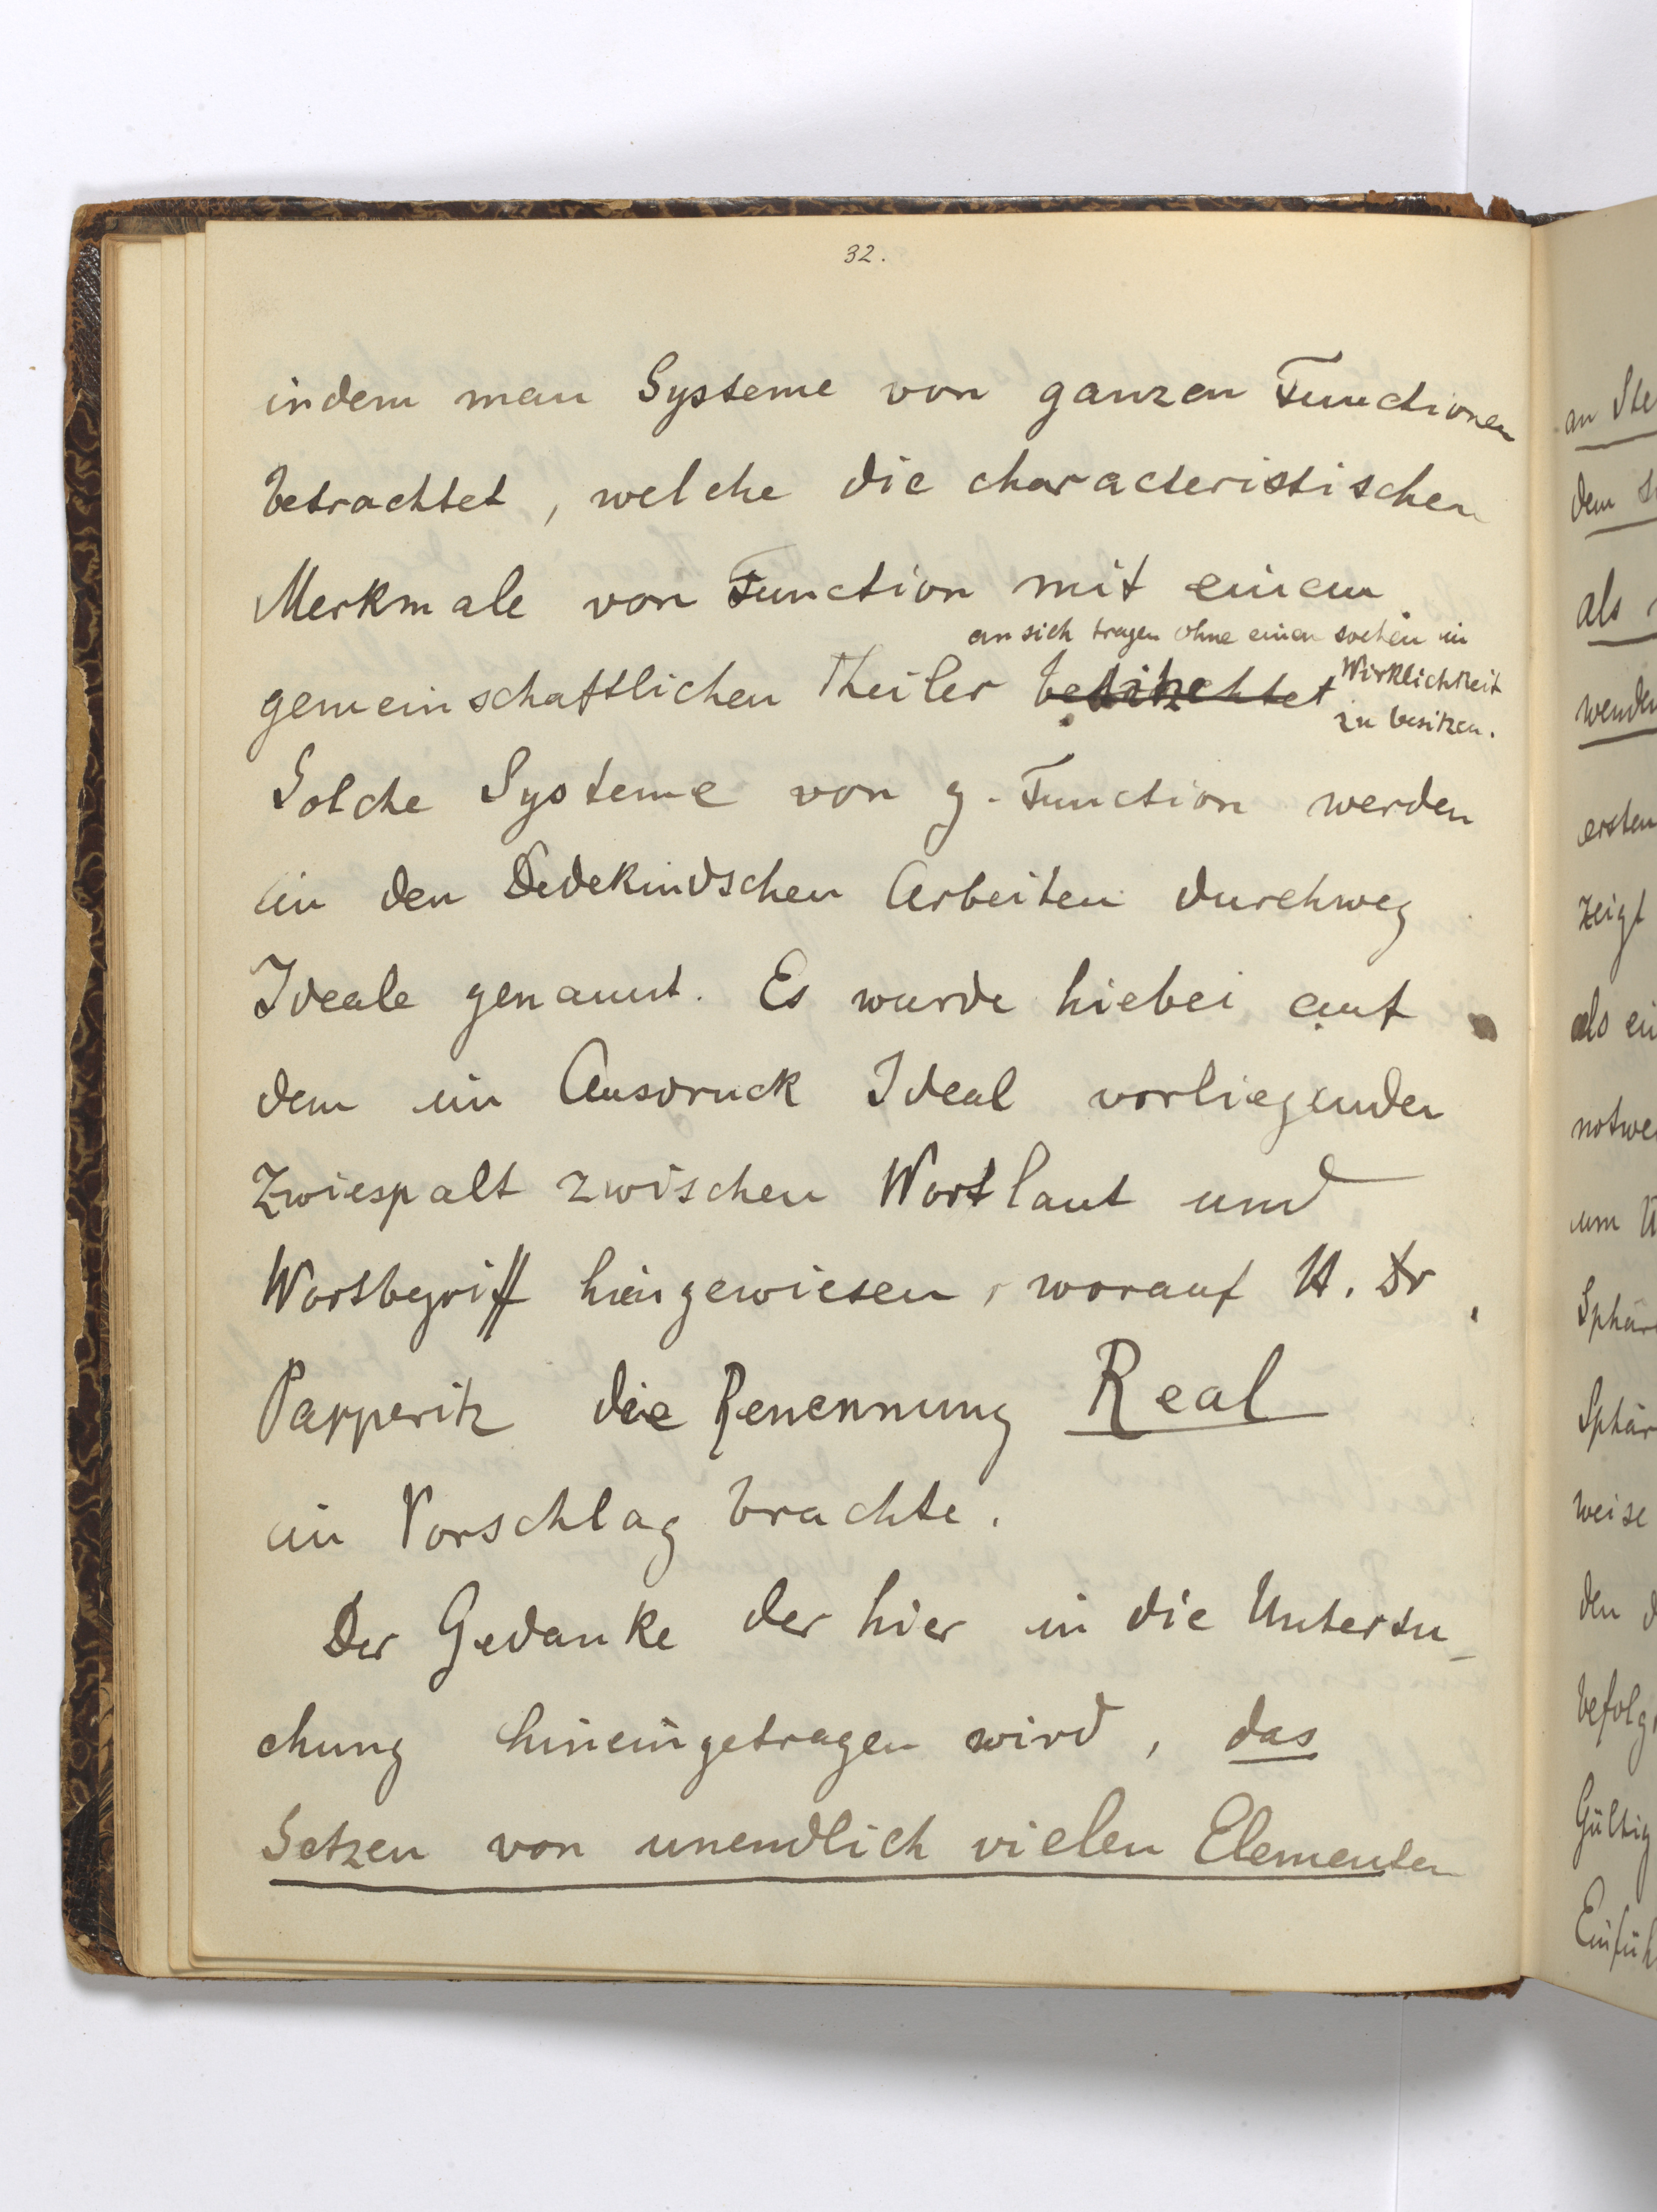 32.
indem man Systeme von ganzen Functionen
betrachtet, welche die characteristischen
Merkmale von Function mit einem
an sich tragen ohne einen solchen in
gemeinschaftlichen Theiler
Wirklichkeit
zu besitzen.
Solche Systeme von g. Function werden
in den Dedekindschen Arbeiten durchweg
Ideale genannt. Es wurde hiebei auf
dem im Ausdruck Ideal vorliegenden
Zwiespalt zwischen Wortlaut und
Wortbegriff hingewiesen, worauf H. Dr.
Papperitz die Benennung Real
in Vorschlag brachte.
Der Gedanke der hier in die Untersu-
chung hineingetragen wird, das
Setzen von unendlich vielen Elementen
an Ste
dem
als
wenden
ersten
zeigt
als ein
notwe
um
Sphär
Sphär
weise
den d
befolg
Gültig
Einfüh